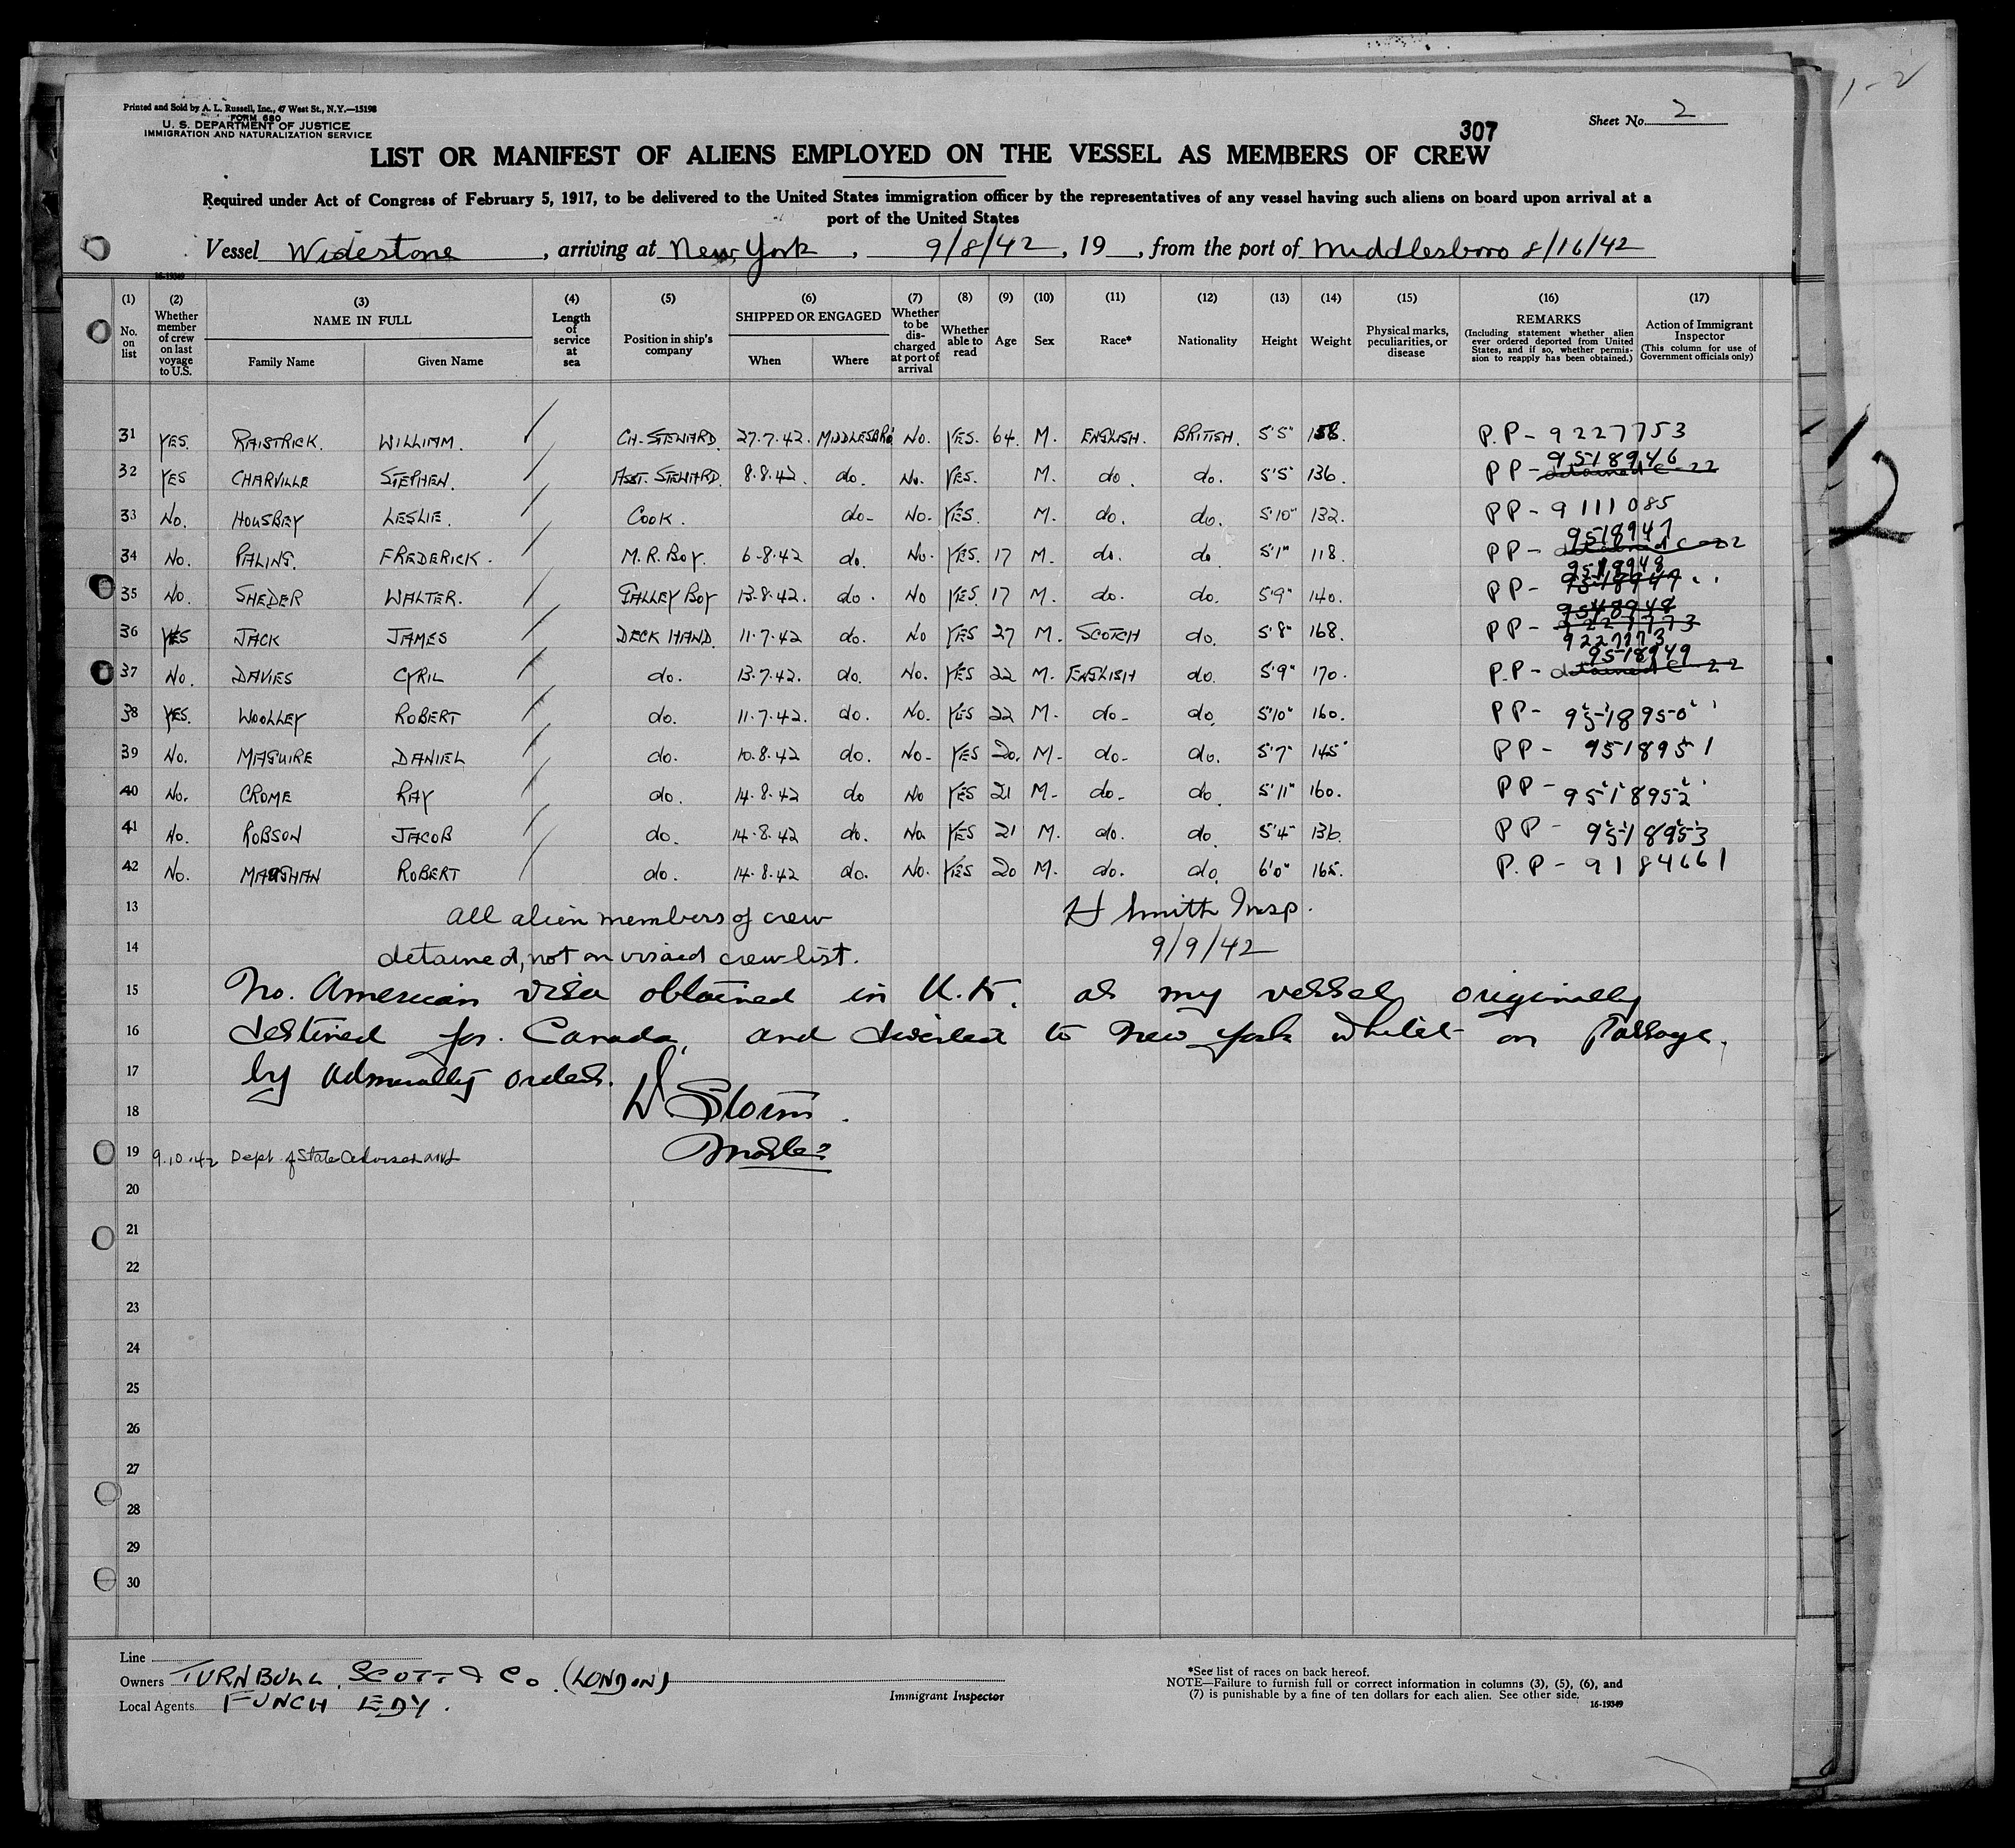 Printed and Sold by A. L. Russell, Inc., 47 West St., N.Y.—15198
FORM 680
U. S. DEPARTMENT OF JUSTICE
IMMIGRATION AND NATURALIZATION SERVICE
1-2
Sheet No. 2
307
LIST OR MANIFEST OF ALIENS EMPLOYED ON THE VESSEL AS MEMBERS OF CREW
Required under Act of Congress of February 5, 1917, to be delivered to the United States immigration officer by the representatives of any vessel having such aliens on board upon arrival at a
port of the United States
Vessel Widestone, arriving at New York, 9/8/42, 19 , from the port of Middlesboro 8/16/42
16-19349
(1) No. on list
(2) Whether member of crew on last voyage to U.S.
(3) NAME IN FULL Family Name Given Name
(4) Length of service at sea
(5) Position in ship's company
(6) SHIPPED OR ENGAGED When Where
(7) Whether to be discharged at port of arrival
(8) Whether able to read
(9) Age
(10) Sex
(11) Race*
(12) Nationality
(13) Height
(14) Weight
(15) Physical marks, peculiarities, or disease
(16) REMARKS (Including statement whether alien ever ordered deported from United States, and if so, whether permission to reapply has been obtained.)
(17) Action of Immigrant Inspector (This column for use of Government officials only)
31 YES. RAISTRICK. WILLIAM. CH. STEWARD. 27.7.42. MIDDLESBRO No. YES. 64. M. ENGLISH. BRITISH. 5'5" 158. P.P - 9227753
32 YES CHARVILLE STEPHEN. ASST. STEWARD. 8.8.42. do. No. YES. M. do. do. 5'5" 136. PP - 9518946 detained C-22
33 No. HOUSBEY LESLIE. COOK. do- No- YES. M. do. do. 5'10" 132. PP - 9111085
34 No. PALING. FREDERICK. M.R. BOY. 6-8-42 do. No. YES. 17 M. do. do 5'1" 118 PP - 9518947 detained C-22
35 No. SHEDER WALTER. GALLEY BOY 13.8.42. do. No YES. 17 M. do. do. 5'9" 140. PP - 9518948 9518947
36 YES JACK JAMES DECK HAND. 11.7.42 do. No YES 27 M. SCOTCH do. 5'8" 168. PP - 9518948 9227773 9227773
37 No. DAVIES CYRIL do. 13.7.42. do. No. YES 22 M. ENGLISH do. 5'9" 170. P.P - 9518949 detained C-22
38 YES. WOOLLEY ROBERT do. 11.7.42. do. No. YES 22 M. do- do. 5'10" 160. PP - 9518950
39 No. MAGUIRE DANIEL do. 10.8.42 do. No- YES 20. M- do- do. 5'7" 145 PP - 9518951
40 No. CROME RAY do. 14.8.42 do No YES 21 M- do- do. 5'11" 160. PP - 9518952
41 No. ROBSON JACOB do. 14.8.42 do. No YES 21 M. do. do. 5'4" 136. PP - 9518953
42 No. ROBERT do. 14.8.42 do. No. YES 20 M. do. do. 6'0" 165. P.P - 9184661
13 all alien members of crew H Smith Insp.
14 detained, not on visaed crew list. 9/9/42
15 No. American visa obtained in U.K. as my vessel originally
16 destined for Canada, and diverted to New York whilst on Passage.
17 by Admiralty orders.
18 W Storm.
19 9.10.42 Dept of State Master
20
21
22
23
24
25
26
27
28
29
30
2
Line
Owners TURNBULL, SCOTT & Co (LONDON)
Local Agents FUNCH EDY.
Immigrant Inspector
*See list of races on back hereof.
NOTE—Failure to furnish full or correct information in columns (3), (5), (6), and
(7) is punishable by a fine of ten dollars for each alien. See other side.
16-19349